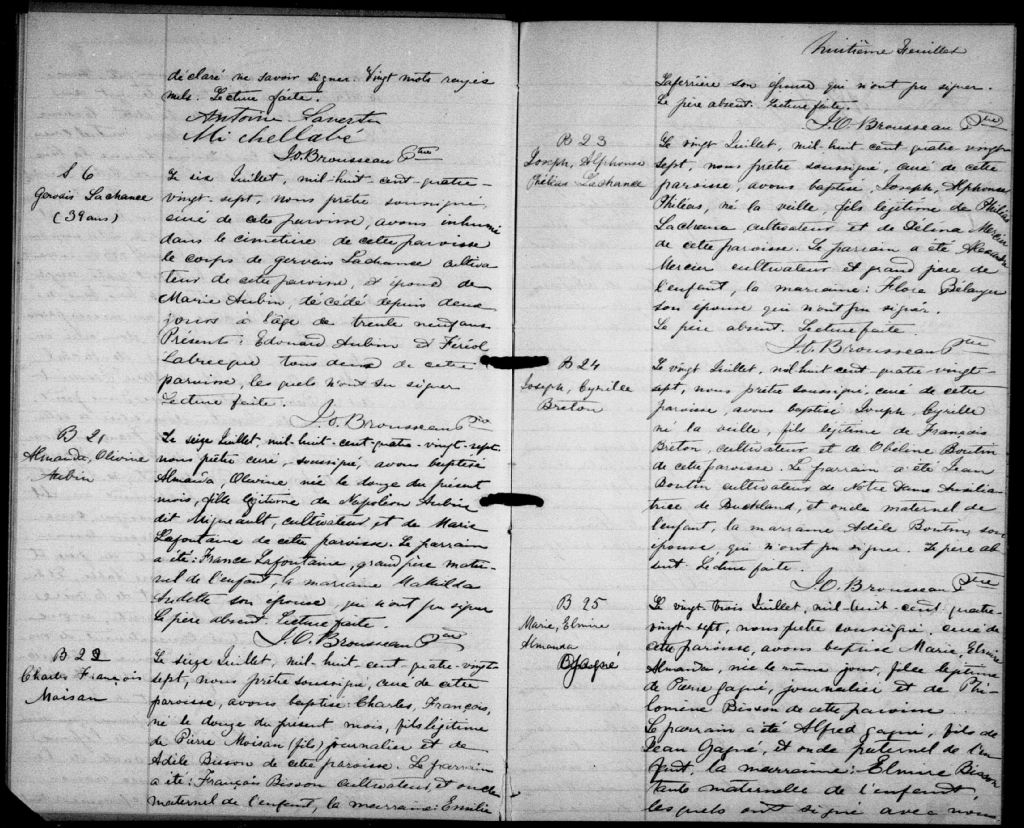 déclaré ne savoir signer. Vingt mots rayés
nuls. Lecture faite.
Antoine Laverta
Michel labé
J.O. Brousseau Ptre
S 6
Gervais Lachance
(39 ans)
Le six Juillet, mil-huit-cent-quatre-
vingt-sept, nous prêtre soussigné,
curé de cette paroisse, avons inhumé
dans le cimetière de cette paroisse
le corps de gervais Lachance cultiva
teur de cette paroisse, et époux de
Marie Aubin, décédé depuis deux
jours à l'âge de trente neuf ans
Présents: Edouard Aubin et Féréol
Labrecque tous deux de cette
paroisse, les quels n'ont su signer
Lecture faite.
J.O. Brousseau Ptre
B 21
Almanda, Olivine
Aubin
Le seize Juillet, mil-huit-cent-quatre-vingt-sept
nous prêtre curé, soussigné, avons baptisé
Almanda, Olivine née le douze du présent
mois, fille légitime de Napoléon Aubin
dit Migneault, cultivateur et de Marie
Lafontaine de cette paroisse. Le parrain
a été: France Lafontaine, grand père mater-
nel de l'enfant, la marraine Mathilda
Audette son épouse, qui n'ont pu signer
Le père absent. Lecture faite.
J.O. Brousseau Ptre
B 22
Charles François
Moisan
Le seize Juillet, mil-huit-cent-quatre-vingt-
sept, nous prêtre soussigné, curé de cette
paroisse, avons baptisé: Charles, François,
né le douze du présent mois, fils légitime
de Pierre Moisan (fils) journalier et de
Adile Bisson de cette paroisse. Le parrain
a été: François Bisson cultivateur, et oncle
maternel de l'enfant, la marraine: Emilie
Huitième Feuillet
Laferrière son épouse qui n'ont pu signer.
Le père absent. Lecture faite.
J.O. Brousseau Ptre
B 23
Joseph, Alphonse
Philias Lachance
Le vingt Juillet, mil-huit cent quatre vingt
sept, nous prêtre soussigné, curé de cette
paroisse, avons baptisé, Joseph, Alphonse
Philias, né la veille, fils légitime de Philias
Lachance cultivateur et de Délina Mercier
de cette paroisse. Le parrain a été Alexandre
Mercier cultivateur et grand père de
l'enfant, la marraine: Flore Bélanger
son épouse qui n'ont pu signer.
Le père absent. Lecture faite
J.O. Brousseau Ptre
B 24
Joseph, Cyrille
Breton
Le vingt Juillet, mil huit cent-quatre-vingt-
sept, nous prêtre soussigné, curé de cette
paroisse, avons baptisé Joseph, Cyrille
né la veille, fils légitime de François
Breton, cultivateur et de Obéline Boutin
de cette paroisse. Le parrain a été Jean
Boutin cultivateur de Notre Dame Auxilia-
trice de Buckland, et oncle maternel de
l'enfant, la marraine Adèle Boutin, son
épouse, qui n'ont pu signer. Le père ab
sent. Lecture faite.
J.O. Brousseau Ptre
B 25
Marie, Elmire
Almanda
Gagné
Le vingt-trois Juillet, mil-huit-cent quatre-
vingt-sept, nous prêtre soussigné, curé de
cette paroisse, avons baptisé Marie, Elmire
Almanda, née le même jour, fille légitime
de Pierre gagné, journalier et de Phi-
lomène Bisson de cette paroisse
Le parrain a été Alfred gagné, fils de
Jean Gagné, et oncle paternel de l'en
fant, la marraine: Elmire Bisson
tante maternelle de l'enfant,
lesquels ont signé avec nous